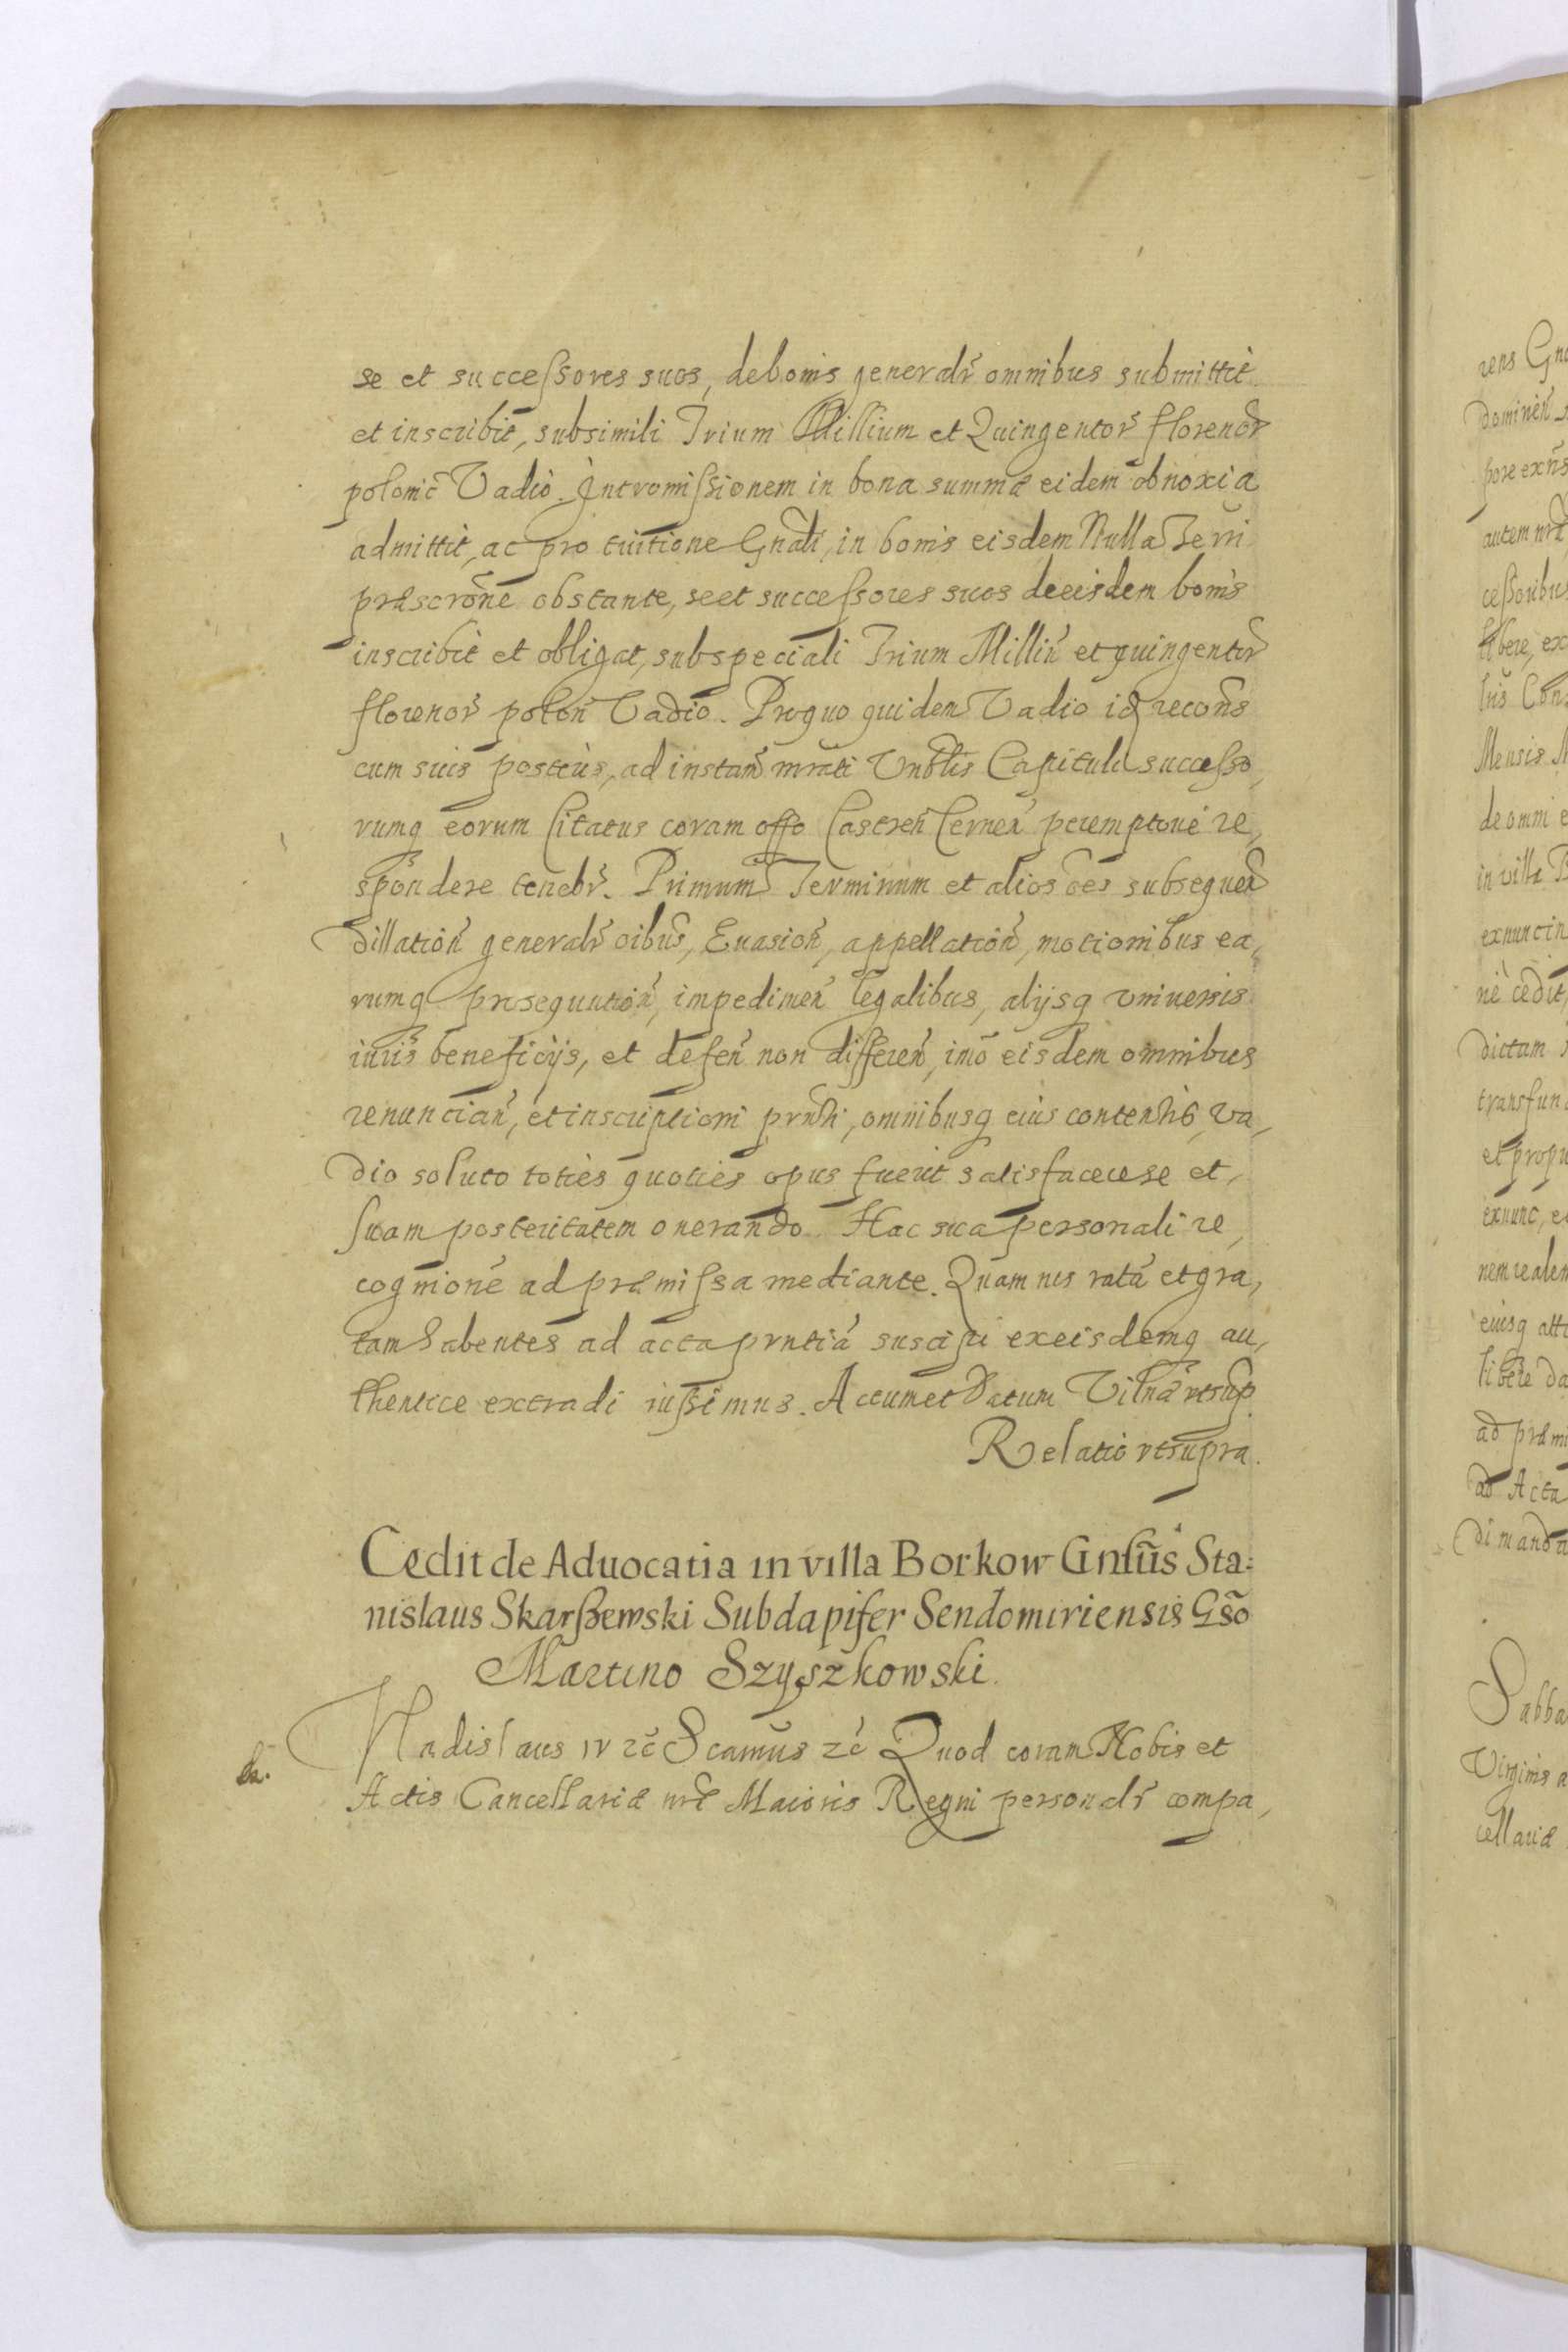 se et successores suos, de bonis generalr̃ omnibus submittit
et inscribit, sub simili Trium Millium et Quingentor̃ florenor̃
polonic̃ Vadio. Intromissionem in bona summæ eidem obnoxia
admittit, ac pro tuitione Gnãli, in bonis eisdem Nulla Terrĩ
præscrõne obstante, se et successores suos de eisdem bonis
inscribit et obligat, sub speciali Trium Milliũ et quingentor̃
florenor̃ polon̄ Vadio. Pro quo quidem Vadio idẽ recon̄s
cum suis posteris, ad instan̄ mrãti Vnblis Capituli successo,
rumq eorum Citatus coram offo Castren̄ Cernen̄ peremptorie re,
spondere tenebr̃. Primum Terminum et alios oẽs subsequeñ
dillation̄ generalr̃ oibus, Euasion̄, appellation̄, motionibus ea,
rumq prosequution̄, impedimen̄ legalibus, alijsq vniuersis
iuris beneficijs, et defen̄ non differen̄, imo eisdem omnibus
renuncian̄, et inscriptioni prñti, omnibusq eius contentis, va,
dio soluto toties quoties opus fuerit satisfacere se et,
suam posteritatem onerando. Hac sua personali re,
cognione ad præmissa mediante. Quam nos ratã et gra,
tam habentes ad acta prñtia suscipi ex eisdemq au,
thentice extradi iussimus. Actum et Datum Vilnæ vtsup̃
Relatio vt supra.
Cedit de Aduocatia in villa Borkow Gnſũs Sta:
nislaus Skarßewski Subdapifer Sendomiriensis Gsõ
Martino Szyszkowski.
la.
Vladislaus IV ec̃ Scamũs ec̃ Quod coram Nobis et
Actis Cancellariæ nrẽ Maioris Regni personalr̃ compa,
rens Gn
dominen̄
pore exn̄s
autem nrã
cessoribus
libere, ex
Cons
Mensis M
de omni e
in villa B
exnunc in
cedit
dictam
transfun
et propu
exnunc, e
nem realem
eiusq alt
libere da
ad præmi
ad Acta
di mandã
Sabba
Virginis a
cellariæ